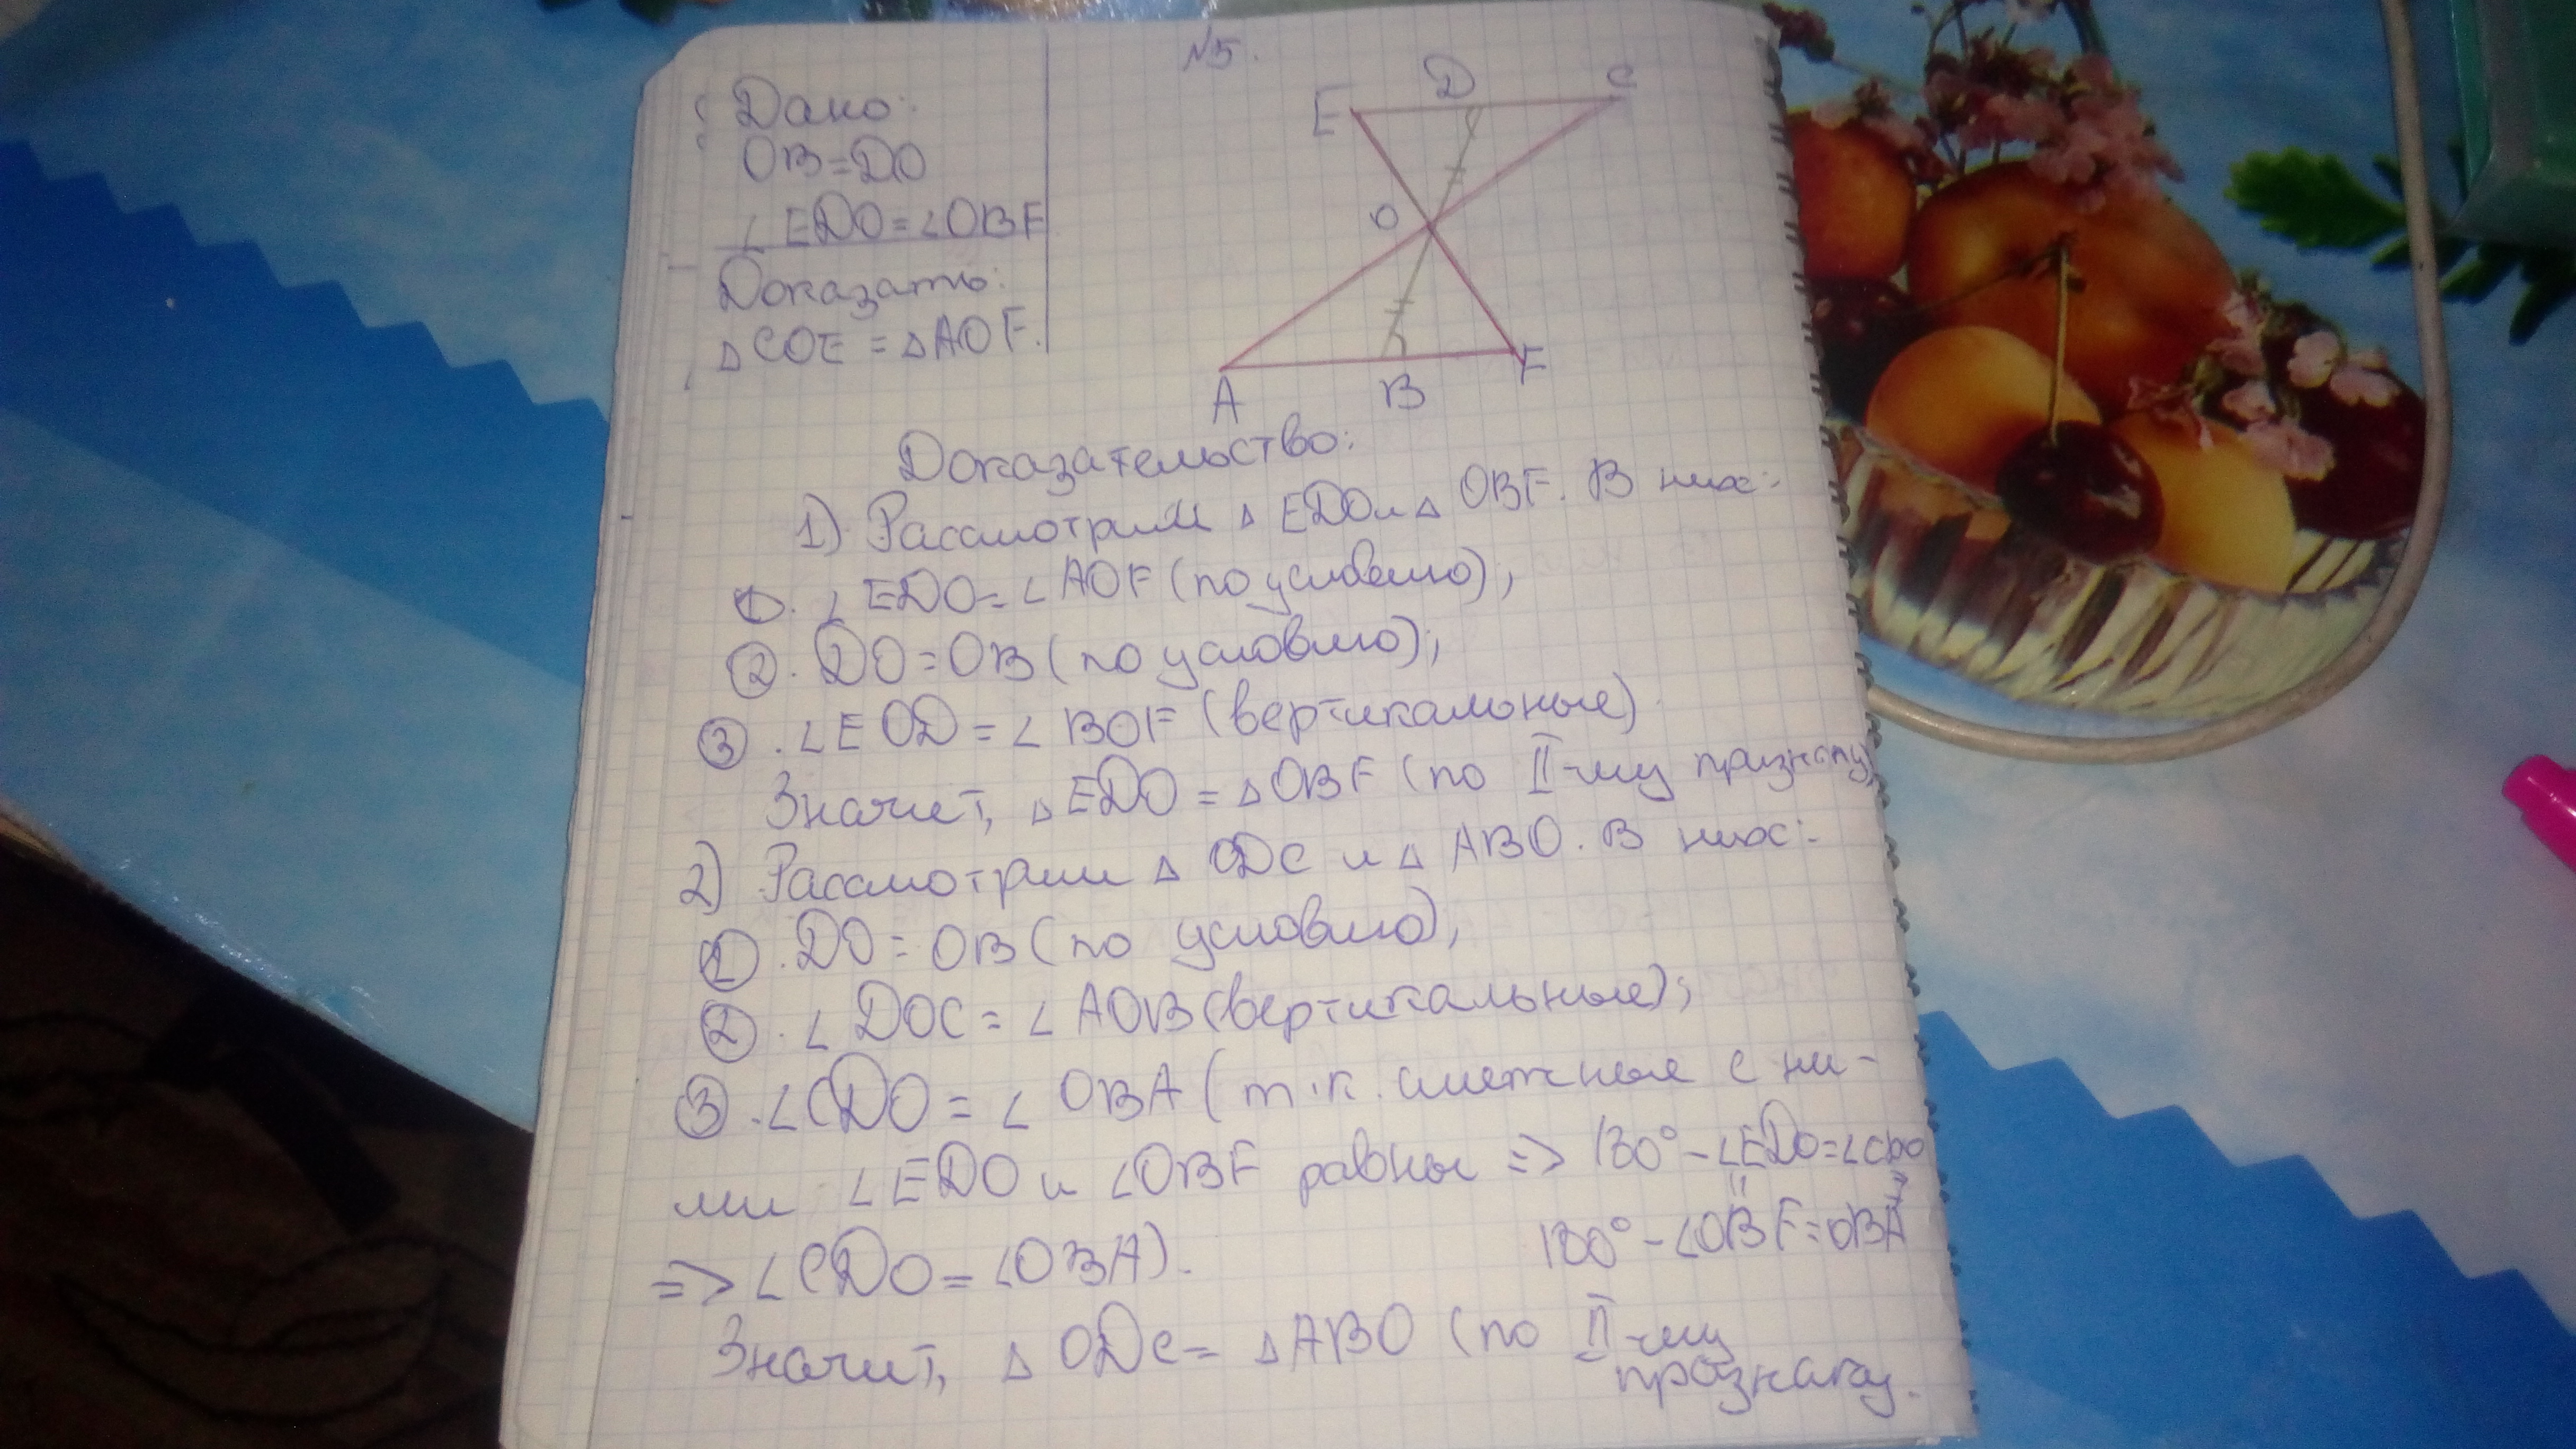 №5.
Дано:
OB=DO
∠EDO=∠OBF
Доказать:
△COE=△AOF.
E D C
O
A B F
Доказательство:
1) Рассмотрим △EDO и △OBF. В них:
1. ∠EDO=∠AOF (по условию);
2. DO=OB (по условию);
3. ∠EOD=∠BOF (вертикальные)
Значит, △EDO=△OBF (по II-му признаку)
2) Рассмотрим △ODC и △ABO. В них:
1. DO=OB (по условию),
2. ∠DOC=∠AOB (вертикальные);
3. ∠CDO=∠OBA (т.к. смежные с ни-
ми ∠EDO и ∠OBF равны => 180°-∠EDO=∠CDO
180°-∠OBF=OBA
=> ∠CDO=∠OBA).
Значит, △ODC=△ABO (по II-му
признаку.